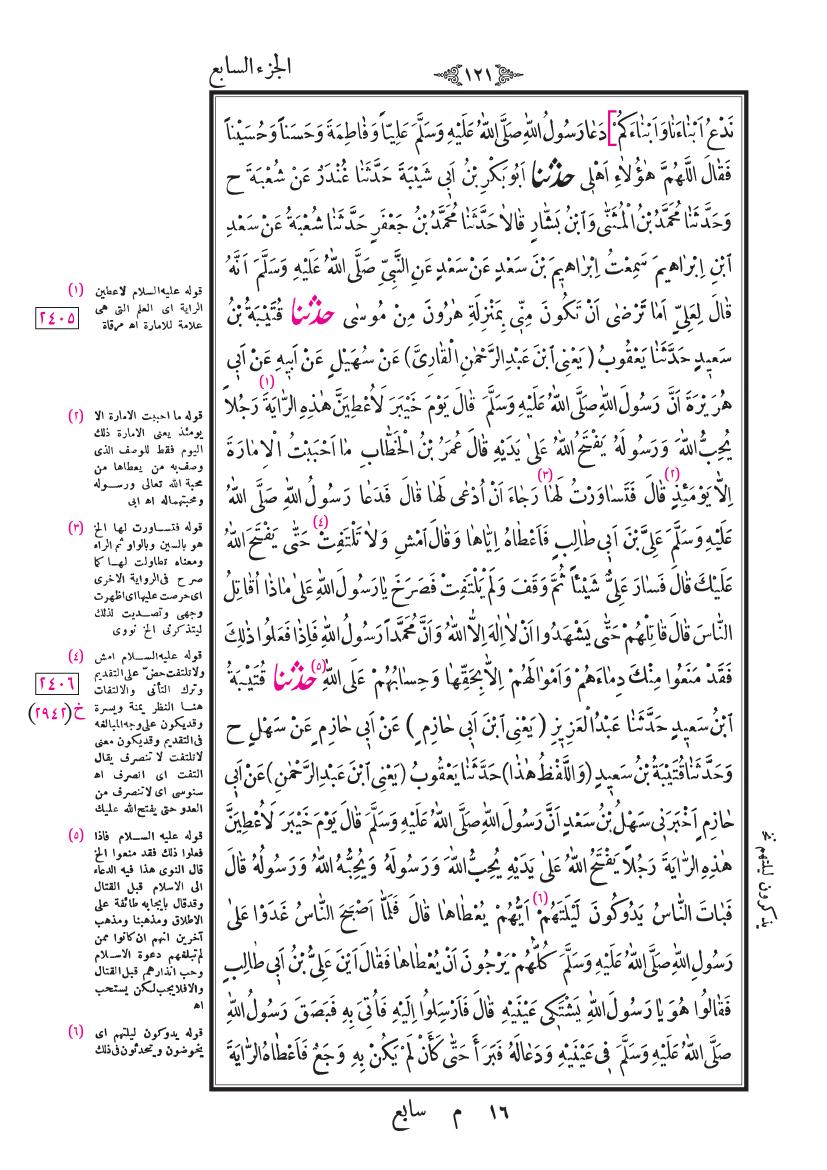 الجزء السابع
١٢١
نَدْعُ اَبْنَاءَنَا وَاَبْنَاءَكُمْ] دَعَا رَسُولُ اللهِ صَلَّى اللهُ عَلَيْهِ وَسَلَّمَ عَلِيّاً وَفَاطِمَةَ وَحَسَناً وَحُسَيْناً
فَقَالَ اللَّهُمَّ هٰؤُلَاءِ اَهْلِى حَدَّثَنَا اَبُو بَكْرِ بْنُ اَبِى شَيْبَةَ حَدَّثَنَا غُنْدَرٌ عَنْ شُعْبَةَ ح
وَحَدَّثَنَا مُحَمَّدُ بْنُ الْمُثَنَّى وَابْنُ بَشَّارٍ قَالَا حَدَّثَنَا مُحَمَّدُ بْنُ جَعْفَرٍ حَدَّثَنَا شُعْبَةُ عَنْ سَعْدِ
ابْنِ اِبْرَاهِيمَ سَمِعْتُ اِبْرَاهِيمَ بْنَ سَعْدٍ عَنْ سَعْدٍ عَنِ النَّبِىِّ صَلَّى اللهُ عَلَيْهِ وَسَلَّمَ اَنَّهُ
قَالَ لِعَلِىٍّ اَمَا تَرْضٰى اَنْ تَكُونَ مِنِّى بِمَنْزِلَةِ هٰرُونَ مِنْ مُوسٰى حَدَّثَنَا قُتَيْبَةُ بْنُ
سَعِيدٍ حَدَّثَنَا يَعْقُوبُ (يَعْنِى ابْنَ عَبْدِ الرَّحْمٰنِ الْقَارِىَّ) عَنْ سُهَيْلٍ عَنْ اَبِيهِ عَنْ اَبِى
هُرَيْرَةَ اَنَّ رَسُولَ اللهِ صَلَّى اللهُ عَلَيْهِ وَسَلَّمَ قَالَ يَوْمَ خَيْبَرَ لَاُعْطِيَنَّ هٰذِهِ الرَّايَةَ (١) رَجُلاً
يُحِبُّ اللهَ وَرَسُولَهُ يَفْتَحُ اللهُ عَلٰى يَدَيْهِ قَالَ عُمَرُ بْنُ الْخَطَّابِ مَا اَحْبَبْتُ الْاِمَارَةَ
اِلَّا يَوْمَئِذٍ (٢) قَالَ فَتَسَاوَرْتُ لَهَا (٣) رَجَاءَ اَنْ اُدْعٰى لَهَا قَالَ فَدَعَا رَسُولُ اللهِ صَلَّى اللهُ
عَلَيْهِ وَسَلَّمَ عَلِىَّ بْنَ اَبِى طَالِبٍ فَاَعْطَاهُ اِيَّاهَا وَقَالَ امْشِ وَلَا تَلْتَفِتْ (٤) حَتّٰى يَفْتَحَ اللهُ
عَلَيْكَ قَالَ فَسَارَ عَلِىٌّ شَيْئاً ثُمَّ وَقَفَ وَلَمْ يَلْتَفِتْ فَصَرَخَ يَا رَسُولَ اللهِ عَلٰى مَاذَا اُقَاتِلُ
النَّاسَ قَالَ قَاتِلْهُمْ حَتّٰى يَشْهَدُوا اَنْ لَا اِلٰهَ اِلَّا اللهُ وَاَنَّ مُحَمَّداً رَسُولُ اللهِ فَاِذَا فَعَلُوا ذٰلِكَ
فَقَدْ مَنَعُوا مِنْكَ دِمَاءَهُمْ وَاَمْوَالَهُمْ اِلَّا بِحَقِّهَا وَحِسَابُهُمْ عَلَى اللهِ (٥) حَدَّثَنَا قُتَيْبَةُ
ابْنُ سَعِيدٍ حَدَّثَنَا عَبْدُ الْعَزِيزِ (يَعْنِى ابْنَ اَبِى حَازِمٍ) عَنْ اَبِى حَازِمٍ عَنْ سَهْلٍ ح
وَحَدَّثَنَا قُتَيْبَةُ بْنُ سَعِيدٍ (وَاللَّفْظُ هٰذَا) حَدَّثَنَا يَعْقُوبُ (يَعْنِى ابْنَ عَبْدِ الرَّحْمٰنِ) عَنْ اَبِى
حَازِمٍ اَخْبَرَنِى سَهْلُ بْنُ سَعْدٍ اَنَّ رَسُولَ اللهِ صَلَّى اللهُ عَلَيْهِ وَسَلَّمَ قَالَ يَوْمَ خَيْبَرَ لَاُعْطِيَنَّ
هٰذِهِ الرَّايَةَ رَجُلاً يَفْتَحُ اللهُ عَلٰى يَدَيْهِ يُحِبُّ اللهَ وَرَسُولَهُ وَيُحِبُّهُ اللهُ وَرَسُولُهُ قَالَ
فَبَاتَ النَّاسُ يَدُوكُونَ لَيْلَتَهُمْ (٦) اَيُّهُمْ يُعْطَاهَا قَالَ فَلَمَّا اَصْبَحَ النَّاسُ غَدَوْا عَلٰى
رَسُولِ اللهِ صَلَّى اللهُ عَلَيْهِ وَسَلَّمَ كُلُّهُمْ يَرْجُونَ اَنْ يُعْطَاهَا فَقَالَ اَيْنَ عَلِىُّ بْنُ اَبِى طَالِبٍ
فَقَالُوا هُوَ يَا رَسُولَ اللهِ يَشْتَكِى عَيْنَيْهِ قَالَ فَاَرْسَلُوا اِلَيْهِ فَاُتِىَ بِهِ فَبَصَقَ رَسُولُ اللهِ
صَلَّى اللهُ عَلَيْهِ وَسَلَّمَ فِى عَيْنَيْهِ وَدَعَا لَهُ فَبَرَأَ حَتّٰى كَأَنْ لَمْ يَكُنْ بِهِ وَجَعٌ فَاَعْطَاهُ الرَّايَةَ
(١) قوله عليه السلام لاعطين
الراية اى العلم التى هى
علامة للامارة اه مرقاة
٢٤٠٥
(٢) قوله ما احببت الامارة الا
يومئذ يعنى الامارة ذلك
اليوم فقط للوصف الذى
وصف به من يعطاها من
محبة الله تعالى ورسوله
ومحبتهماله اه ابى
(٣) قوله فتساورت لها الخ
هو بالسين وبالواو ثم الراء
ومعناه تطاولت لها كما
صرح فى الرواية الاخرى
اى حرصت عليها اى اظهرت
وجهى وتصديت لذلك
ليتذكرنى الخ نووى
(٤) قوله عليه السلام امش
ولا تلتفت حض على التقديم
وترك التأنى والالتفات
هنا النظر يمنة ويسرة
وقديكون على وجه المبالغه
فى التقديم وقديكون معنى
لا تلتفت لا تنصرف يقال
التفت اى انصرف اه
سنوسى اى لا تنصرف من
العدو حتى يفتح الله عليك
٢٤٠٦
خ (٢٩٤٢)
(٥) قوله عليه السلام فاذا
فعلوا ذلك فقد منعوا الخ
قال النوى هذا فيه الدعاء
الى الاسلام قبل القتال
وقدقال بإيجابه طائفة على
الاطلاق ومذهبنا ومذهب
آخرين انهم ان كانوا ممن
لم تبلغهم دعوة الاسلام
وجب انذارهم قبل القتال
والا فلا يجب لكن يستحب
اه
(٦) قوله يدوكون ليلتهم اى
يخوضون ويتحدثون فى ذلك
يذكرون ليلتهم نخ
١٦ م سابع